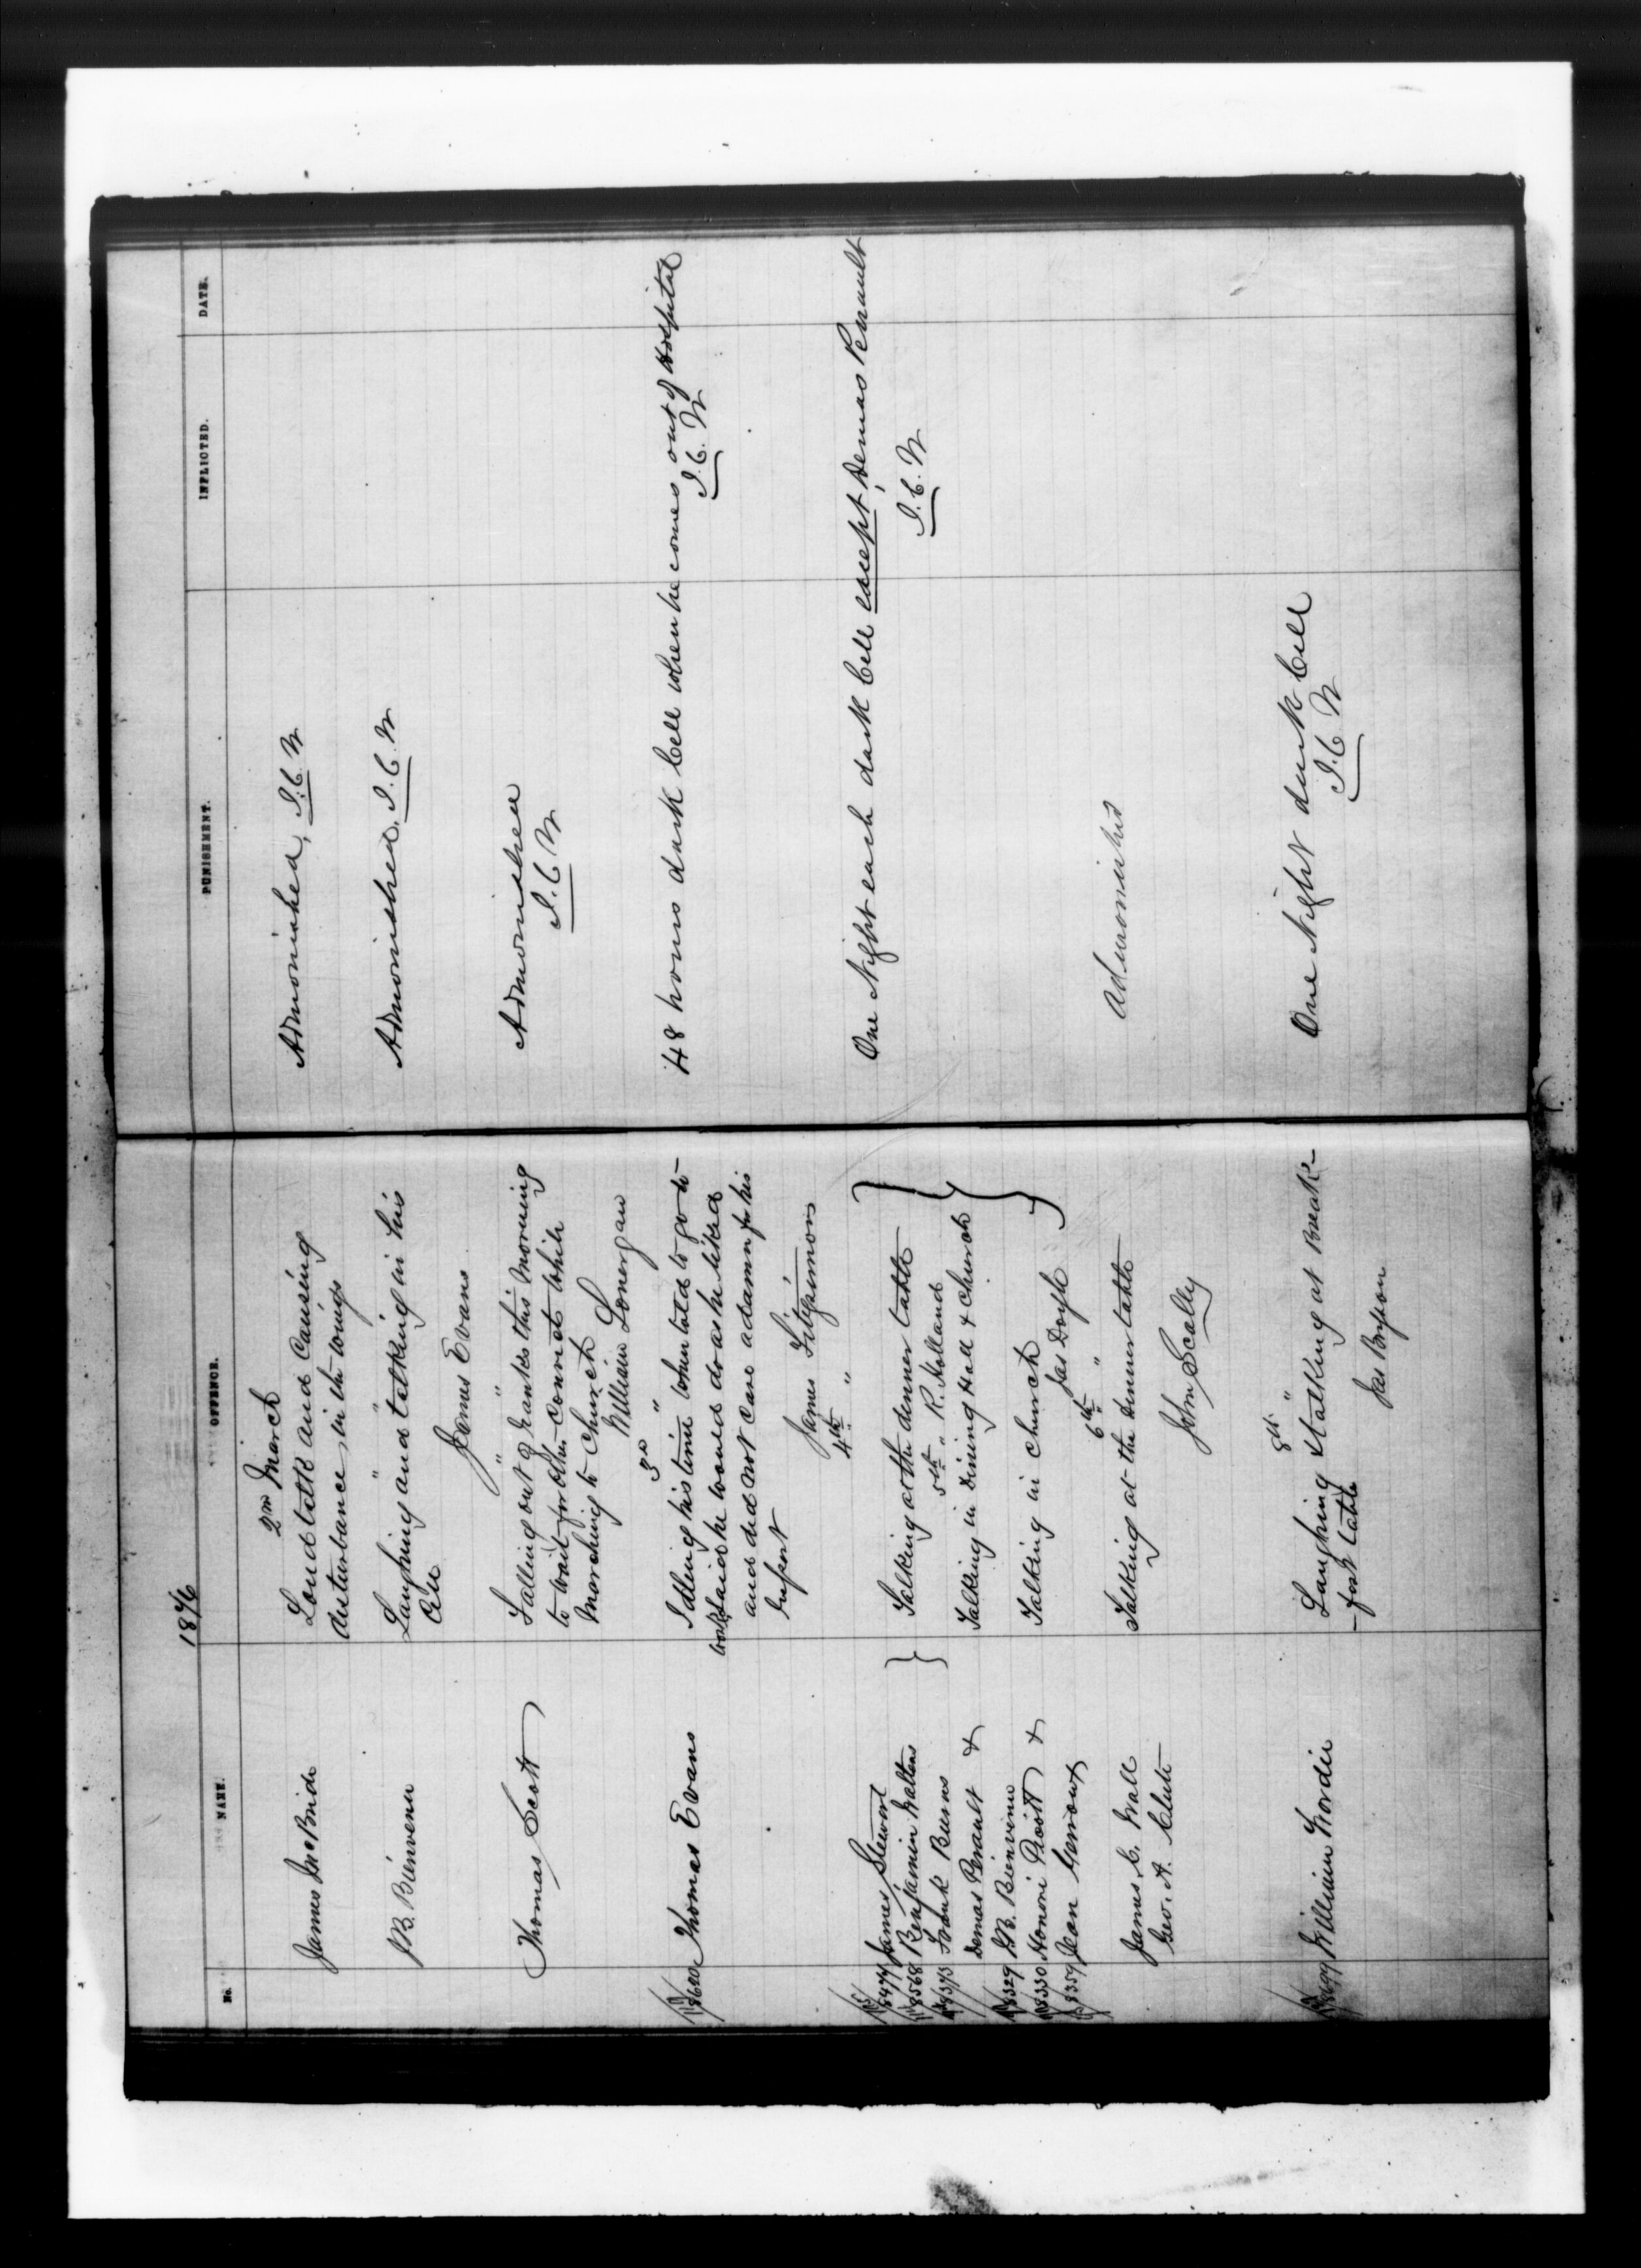 1876
No. NAME. OFFENCE. PUNISHMENT. INFLICTED. DATE.
2nd March
James McBride Loud talk and Causing Admonished, I.C.W
disturbance in the wings
" "
J.B. Bienvenu Laughing and talking in his Admonished, I.C.W
Cell
James Evans
" "
Thomas Scott Falling out of ranks this morning Admonished
to wait for other Convict while I.C.W
marching to Church
William Lonergan
3rd "
8620 Thomas Evans Idling his time when told to go to 48 hours dark Cell when he comes out of Hospital
work said he would do as he liked I.C.W
and did not care a damn for his
report
James Fitzsimmons
4th "
8474 James Stewart Talking at the dinner table One Night each dark Cell except, Demas Perault
8568 Benjamin Walters I.C.W
8373 Frank Burns 5th " R. Holland
Demas Perault & Talking in Dining Hall & Church
8329 J.B. Bienvinu
8330 Honoré Picott & Talking in Church
8359 Jean Jas Doyle
6th "
James C. Wall Talking at the dinner table Admonished
Geo. A. Clute
John Scally
8th "
William Laughing & talking at Break- One Night dark Cell
-fast table I.C.W
Jas